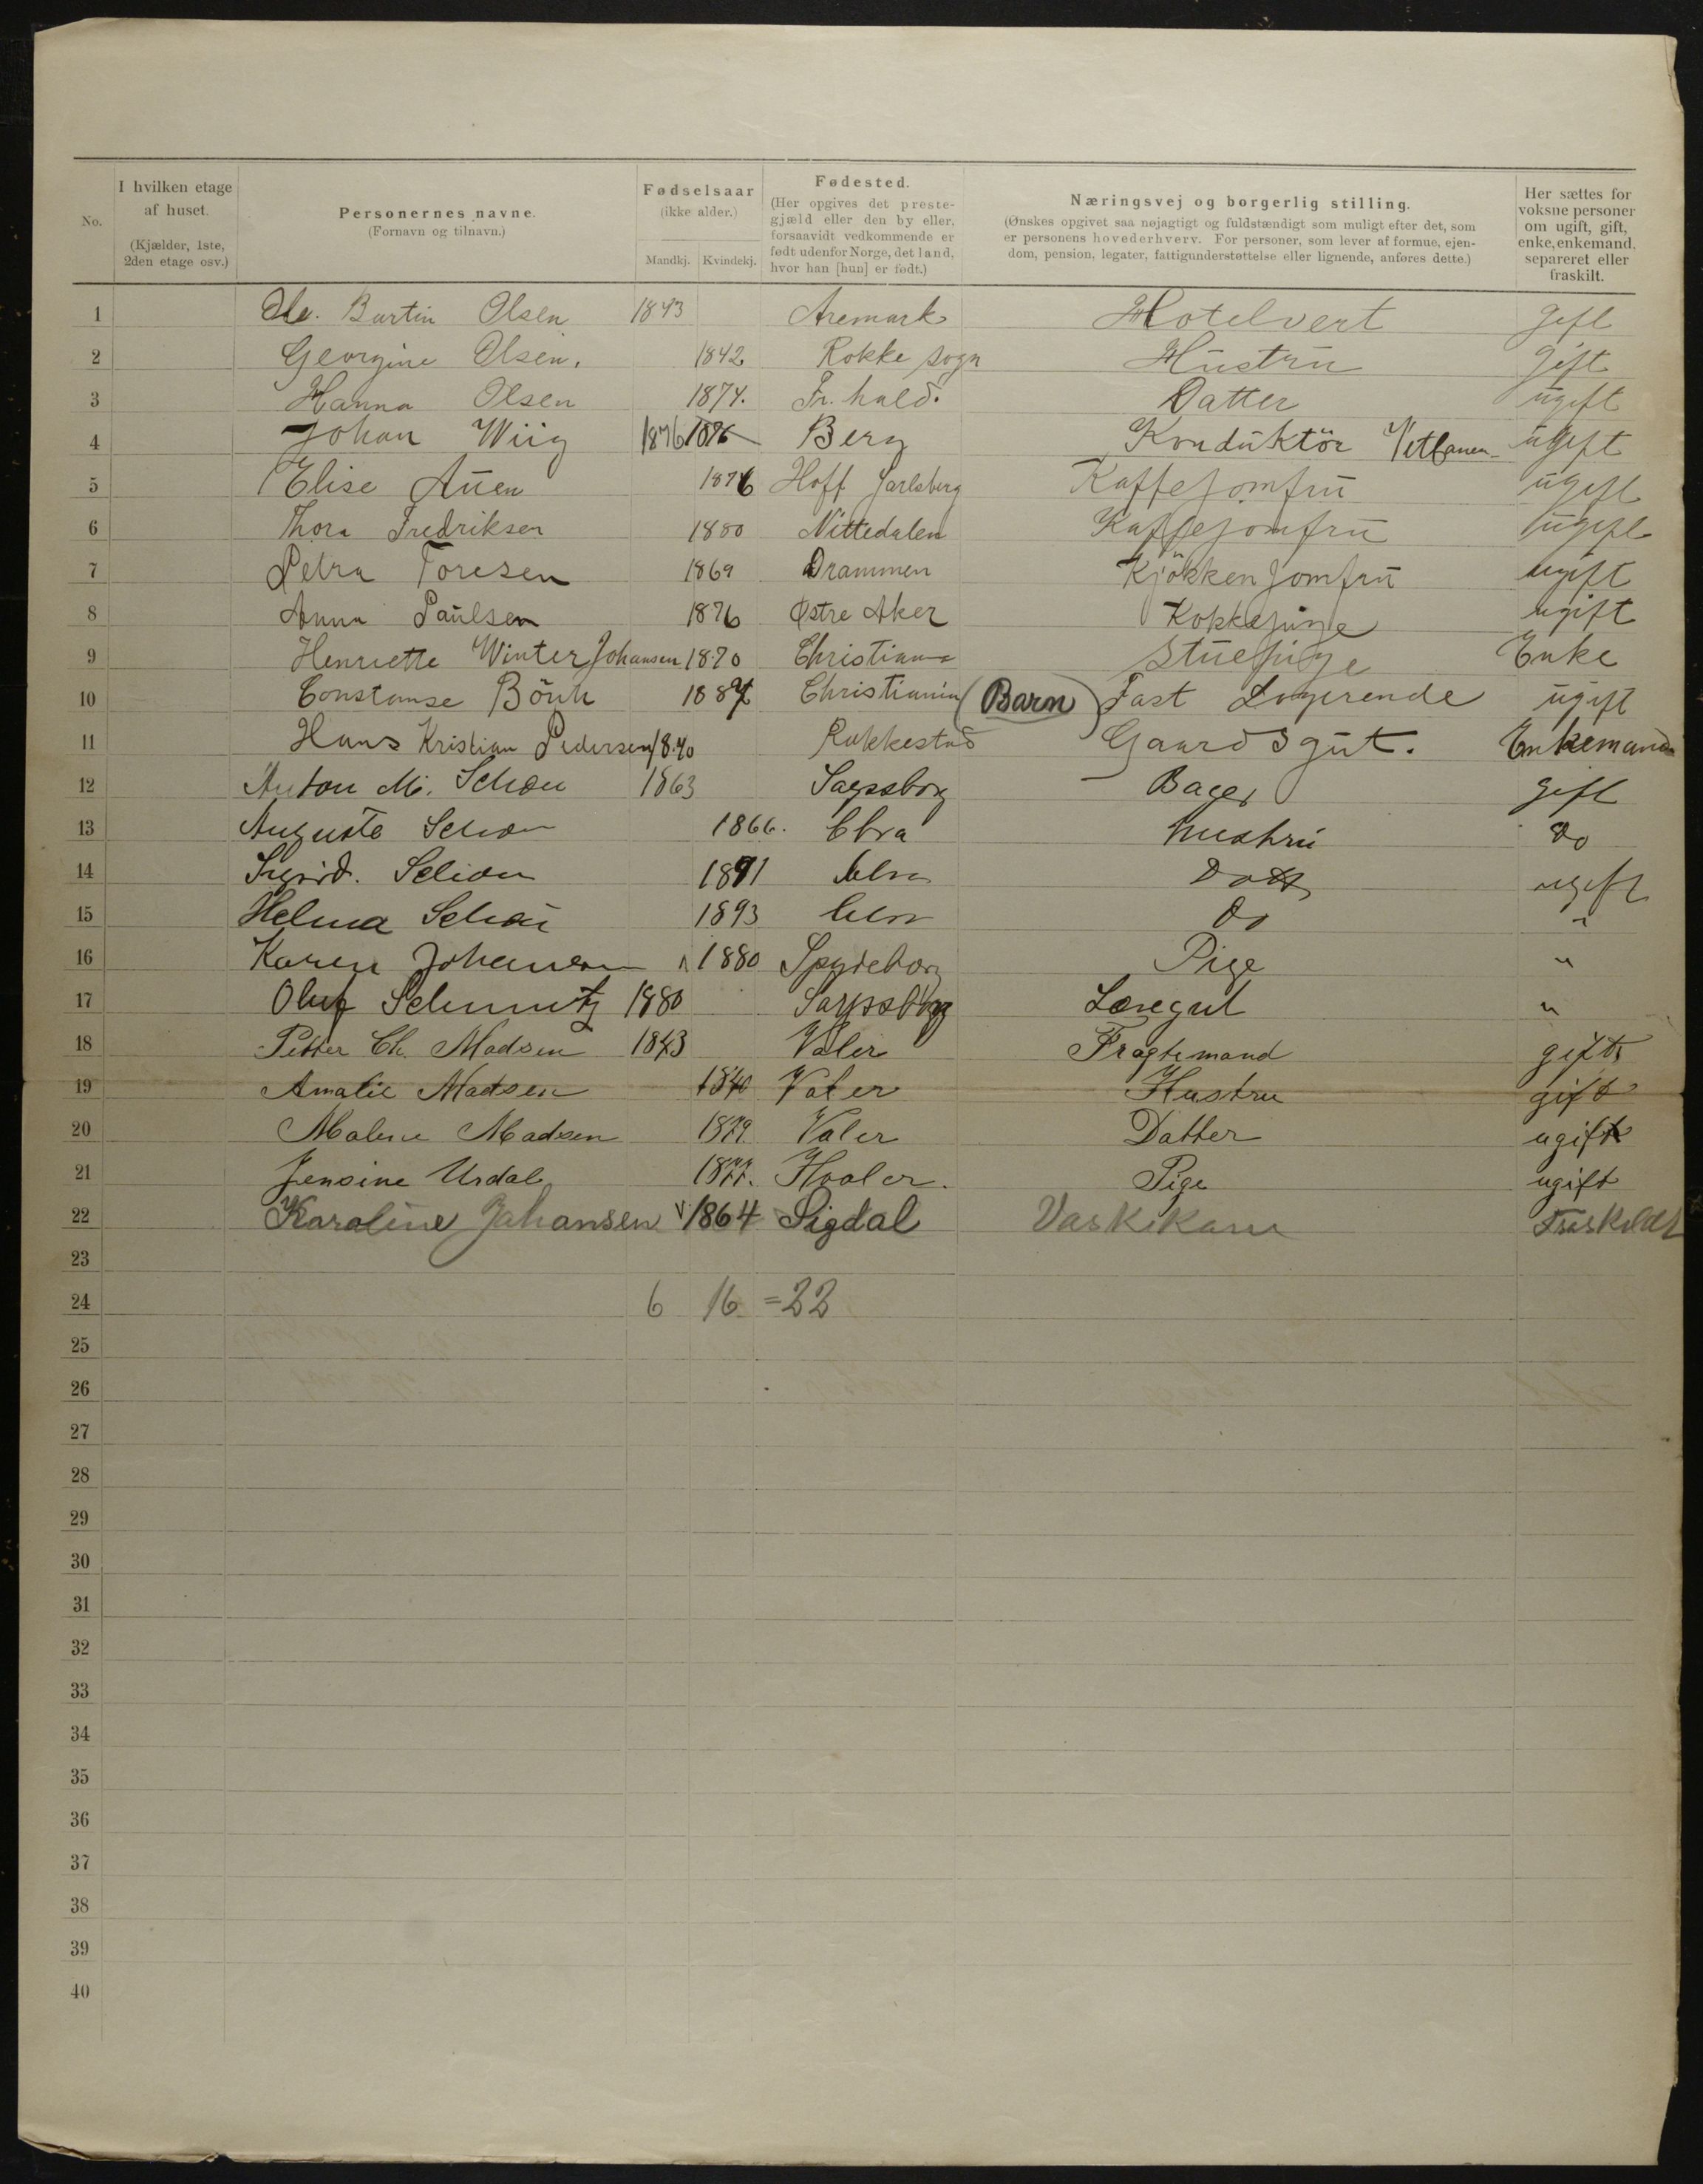 No. I hvilken etage af huset. (Kjælder, 1ste, 2den etage osv.) Personernes navne. (Fornavn og tilnavn.) Fødselsaar (ikke alder.) Mandkj. Kvindekj. Fødested. (Her opgives det prestegjæld eller den by eller, forsaavidt vedkommende er født udenfor Norge, det land, hvor han [hun] er født.) Næringsvej og borgerlig stilling. (Ønskes opgivet saa nøjagtigt og fuldstændigt som muligt efter det, som er personens hovederhverv. For personer, som lever af formue, ejendom, pension, legater, fattigunderstøttelse eller lignende, anføres dette.) Her sættes for voksne personer om ugift, gift, enke, enkemand, separeret eller fraskilt.
1 Ole Burtin Olsen 1843 Aremark Hotelvert gift
2 Georgine Olsen. 1842 Rokke sogn Hustru gift
3 Hanna Olsen 1874. Fr.hald. Datter ugift
4 Johan Wiig 1876 1876 Berg Konduktör ugift
5 Elise Auen 1876 Hoff Jarlsberg Kaffejomfru ugift
6 Thora Fredriksen 1880 Nittedalen Kaffejomfru ugift
7 Petra Toresen 1869 Drammen Kjökken Jomfru ugift
8 Anna Paulsen 1876 Østre Aker Kokkepige ugift
9 Henriette Winter Johansen 1870 Christiania Stuepige Enke
10 Constanse 1887 Christiania (Barn) Fast Logerende ugift
11 Hans Kristian Pedersen 1840 Rakkestad Gaardsgut. Enkemand
12 Anton M. Schou 1863 Sarpsborg Bager gift
13 Auguste Schou 1866. Chra Hustru Do
14 Sigrid. Schou 1891 Chra Datt ugift
15 Helma Schou 1893 Chra Do "
16 Karen Johansen 1880 Spydeberg Pige "
17 Oluf Schmutz 1880 Sarpsborg Læregut "
18 Petter Ch. Madsen 1843 Valer Fragtemand gift
19 Amalie Madsen 1840 Valer Hustru gift
20 Malene Madsen 1879. Valer Datter ugift
21 Jensine Urdal 1877. Hvaler. Pige ugift
22 Karoline Johansen 1864 Sigdal Vaskikone Fraskildt
23
24 6 16 = 22
25
26
27
28
29
30
31
32
33
34
35
36
37
38
39
40